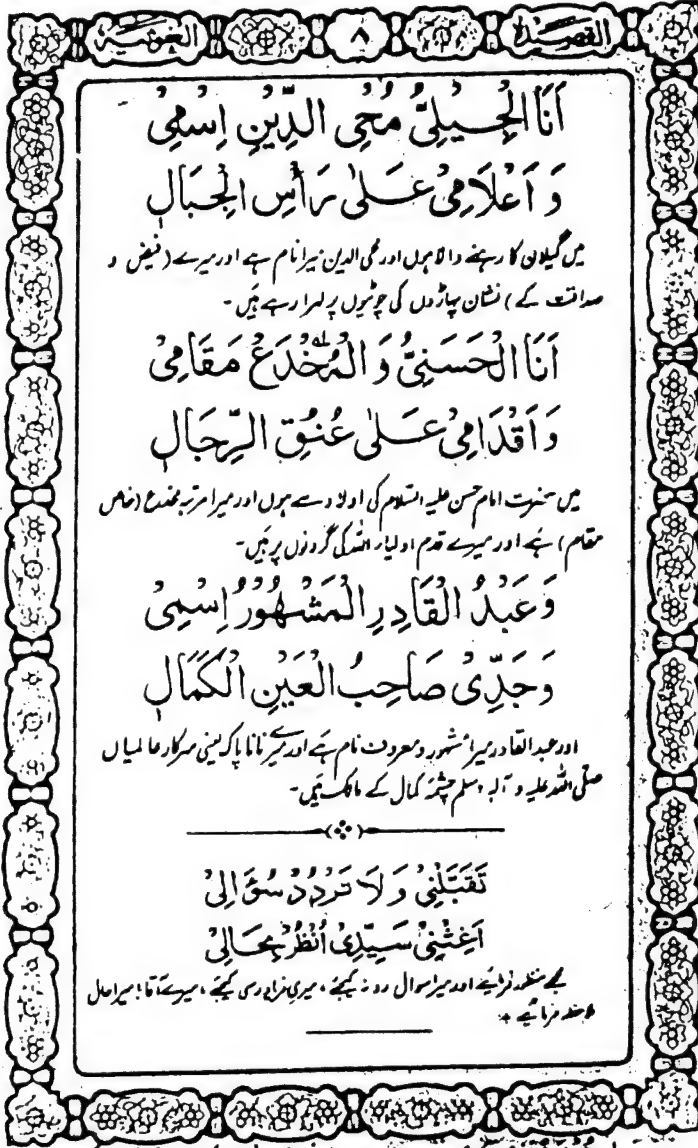 القصيدة ٨ الغوثية
اَنَا الْجِيْلِيُّ مُحْيُ الدِّيْنِ اِسْمِيْ
وَ اَعْلَامِيْ عَلٰى رَأْسِ الْجِبَالِ
میں گیلان کا رہنے والا ہوں اور محی الدین میرا نام ہے اور میرے (فیض و
صداقت کے) نشان پہاڑوں کی چوٹیوں پر لہرا رہے ہیں۔
اَنَا الْحَسَنِيُّ وَ الْمُخْدَعْ مَقَامِيْ
وَ اَقْدَامِيْ عَلٰى عُنُقِ الرِّجَالِ
میں حضرت امام حسن علیہ السلام کی اولاد سے ہوں اور میرا مرتبہ مخدع (خاص
مقام) ہے اور میرے قدم اولیاء اللہ کی گردنوں پر ہیں۔
وَ عَبْدُ الْقَادِرِ الْمَشْهُوْرُ اِسْمِيْ
وَ جَدِّيْ صَاحِبُ الْعَيْنِ الْكَمَالِ
اور عبد القادر میرا مشہور و معروف نام ہے اور میرے نانا پاک یعنی سرکار عالمیاں
صلی اللہ علیہ و آلہ وسلم چشمۂ کمال کے مالک ہیں۔
تَقَبَّلْنِيْ وَ لَا تَرْدُدْ سُؤَالِيْ
اَغِثْنِيْ سَيِّدِيْ اُنْظُرْ بِحَالِيْ
مجھے منظور فرمائیے اور میرا سوال رد نہ کیجئے، میری فریاد رسی کیجئے، میرے آقا! میرا حال
ملاحظہ فرمائیے +